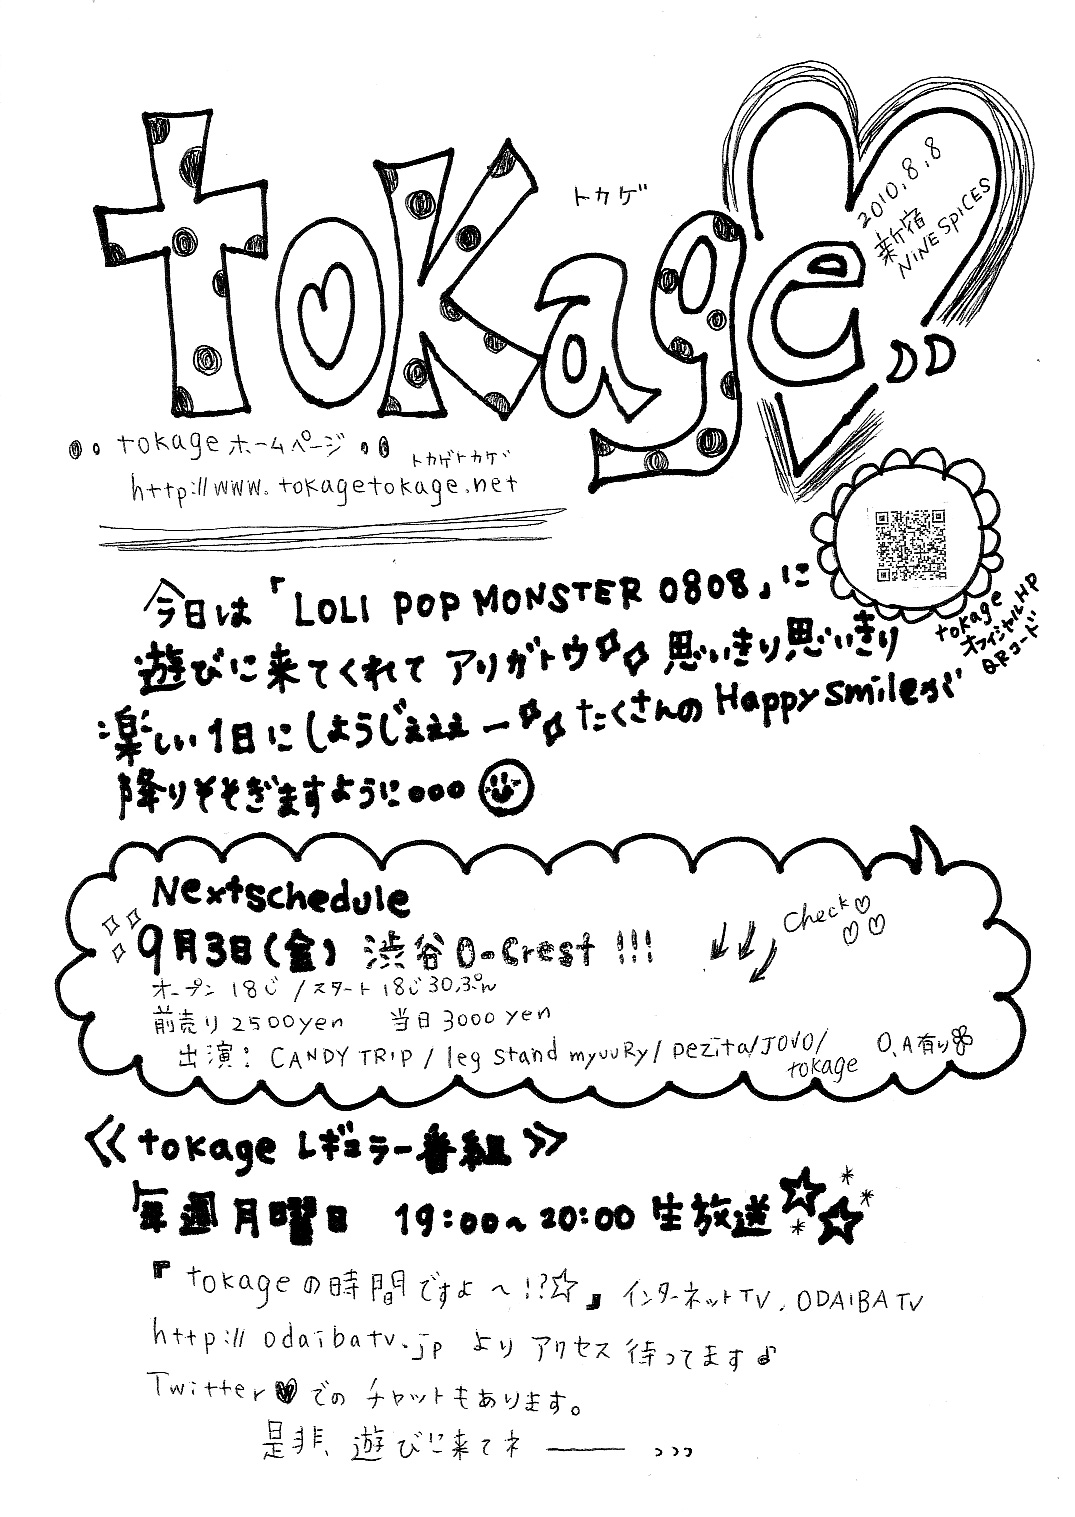 tokage
トカゲ
2010.8.8
新宿
NINE SPICES
tokage ホームページ
トカゲトカゲ
http://www.tokagetokage.net
tokage
オフィシャルHP
QRコード
今日は「LOLI POP MONSTER 0808」に
遊びに来てくれて アリガトウ 思いきり思いきり
楽しい1日にしようじぇぇぇー たくさんの Happy smileが
降りそそぎますように○○○
Next schedule
Check♡
9月3日(金) 渋谷 O-Crest !!!
オープン 18じ / スタート 18じ30.3ぷん
前売り 2500yen 当日 3000yen
出演: CANDY TRIP / leg stand myuuRy / pezita / JOVO /
tokage
O.A有り
《tokage レギュラー番組》
毎週月曜日 19:00~20:00 生放送☆☆
『tokageの時間ですよ~!?☆』インターネットTV. ODAIBA TV
http://odaibatv.jp より アクセス待ってます♪
Twitter♥での チャットもあります。
是非、遊びに来てネ ――― >>>